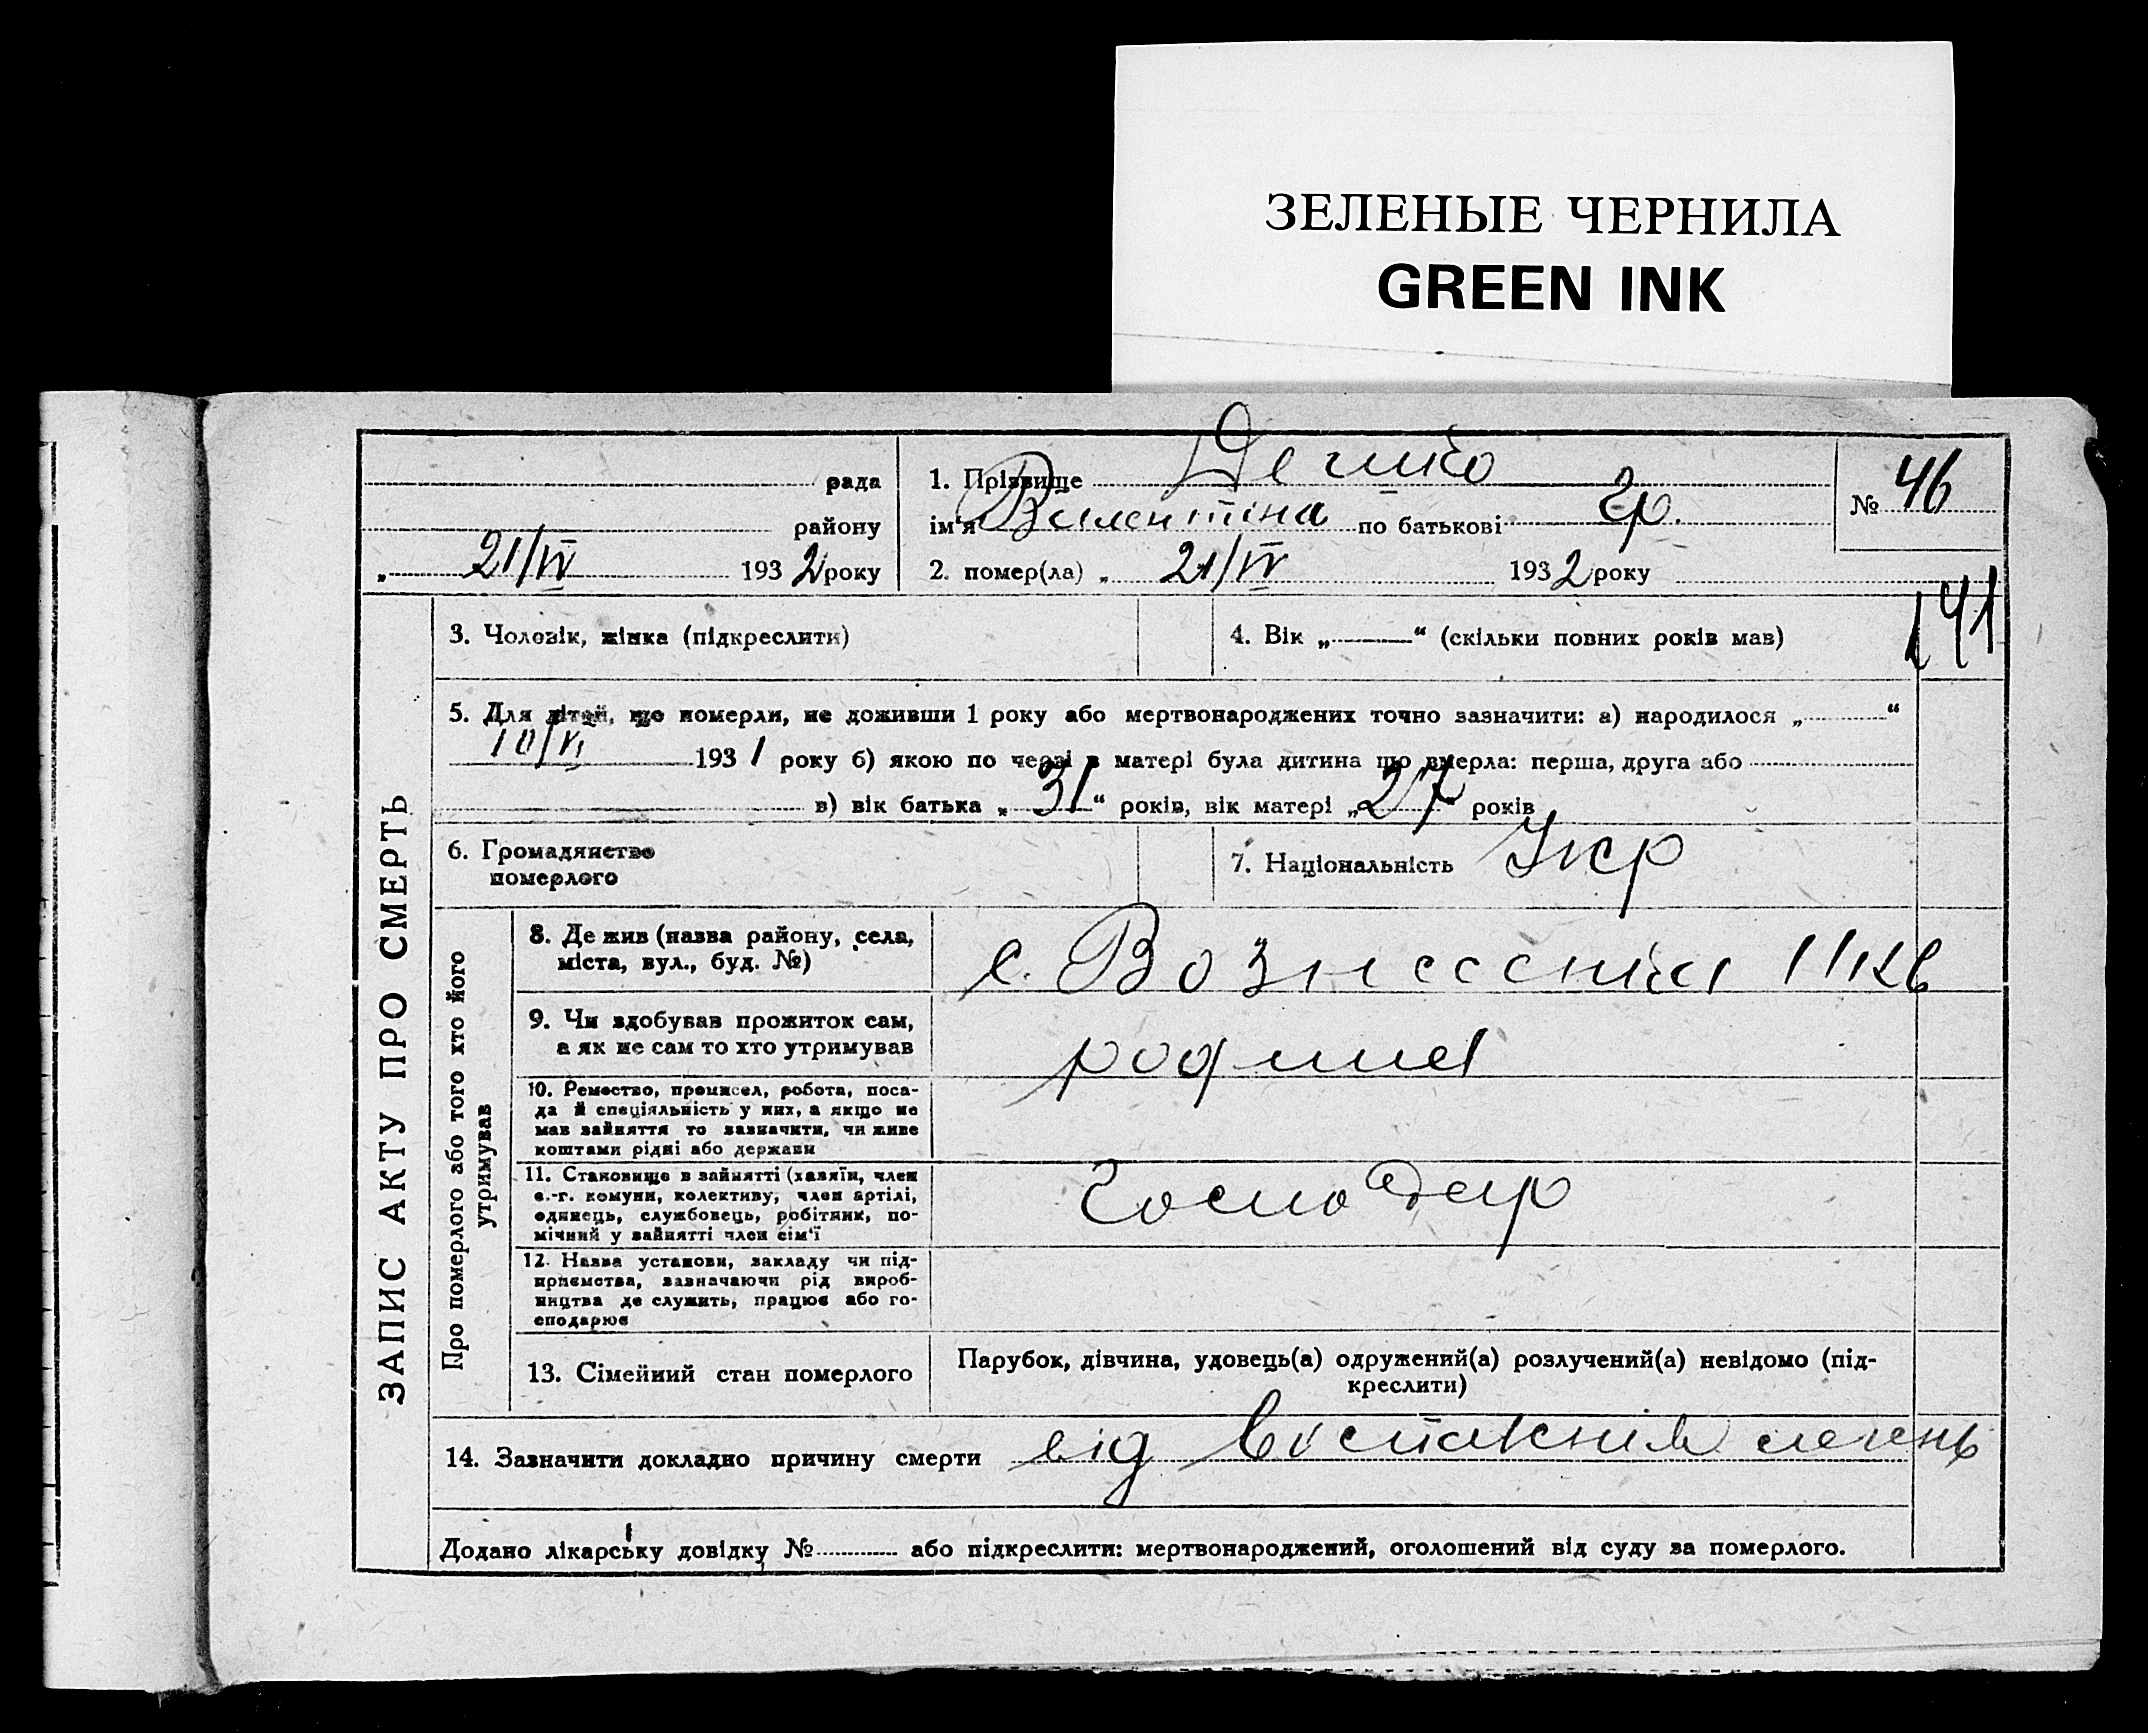 ЗЕЛЕНЫЕ ЧЕРНИЛА
GREEN INK
рада
району
„ 21/IV 1932 року
1. Прізвище
ім'я Валентіна по батькові Гр.
2. помер(ла) „ 21/IV 1932 року
№ 46
141
ЗАПИС АКТУ ПРО СМЕРТЬ
3. Чоловік, жінка (підкреслити)
4. Вік „ “ (скільки повних років мав)
5. Для дітей, що померли, не доживши 1 року або мертвонароджених точно зазначити: а) народилося „ “
10/VI 1931 року б) якою по черзі в матері була дитина що вмерла: перша, друга або
в) вік батька „ 31 “ років, вік матері „ 27 “ років
6. Громадянство
померлого
7. Національність Укр
Про померлого або того хто його
утримував
8. Де жив (назва району, села,
міста, вул., буд. №)
с. Вознесенка
9. Чи здобував прожиток сам,
а як не сам то хто утримував
родина
10. Ремество, промисел, робота, поса-
да й спеціяльність у них, а якщо не
мав зайняття то зазначити, чи живе
коштами рідні або держави
11. Становище в зайнятті (хазяїн, член
с.-г. комуни, колективу, член артілі,
одинець, службовець, робітник, по-
мічний у зайнятті член сім'ї
Господар
12. Назва установи, закладу чи під-
приємства, зазначаючи рід вироб-
ництва де служить, працює або го-
сподарює
13. Сімейний стан померлого
Парубок, дівчина, удовець(а) одружений(а) розлучений(а) невідомо (під-
креслити)
14. Зазначити докладно причину смерти від легень
Додано лікарську довідку № або підкреслити: мертвонароджений, оголошений від суду за померлого.